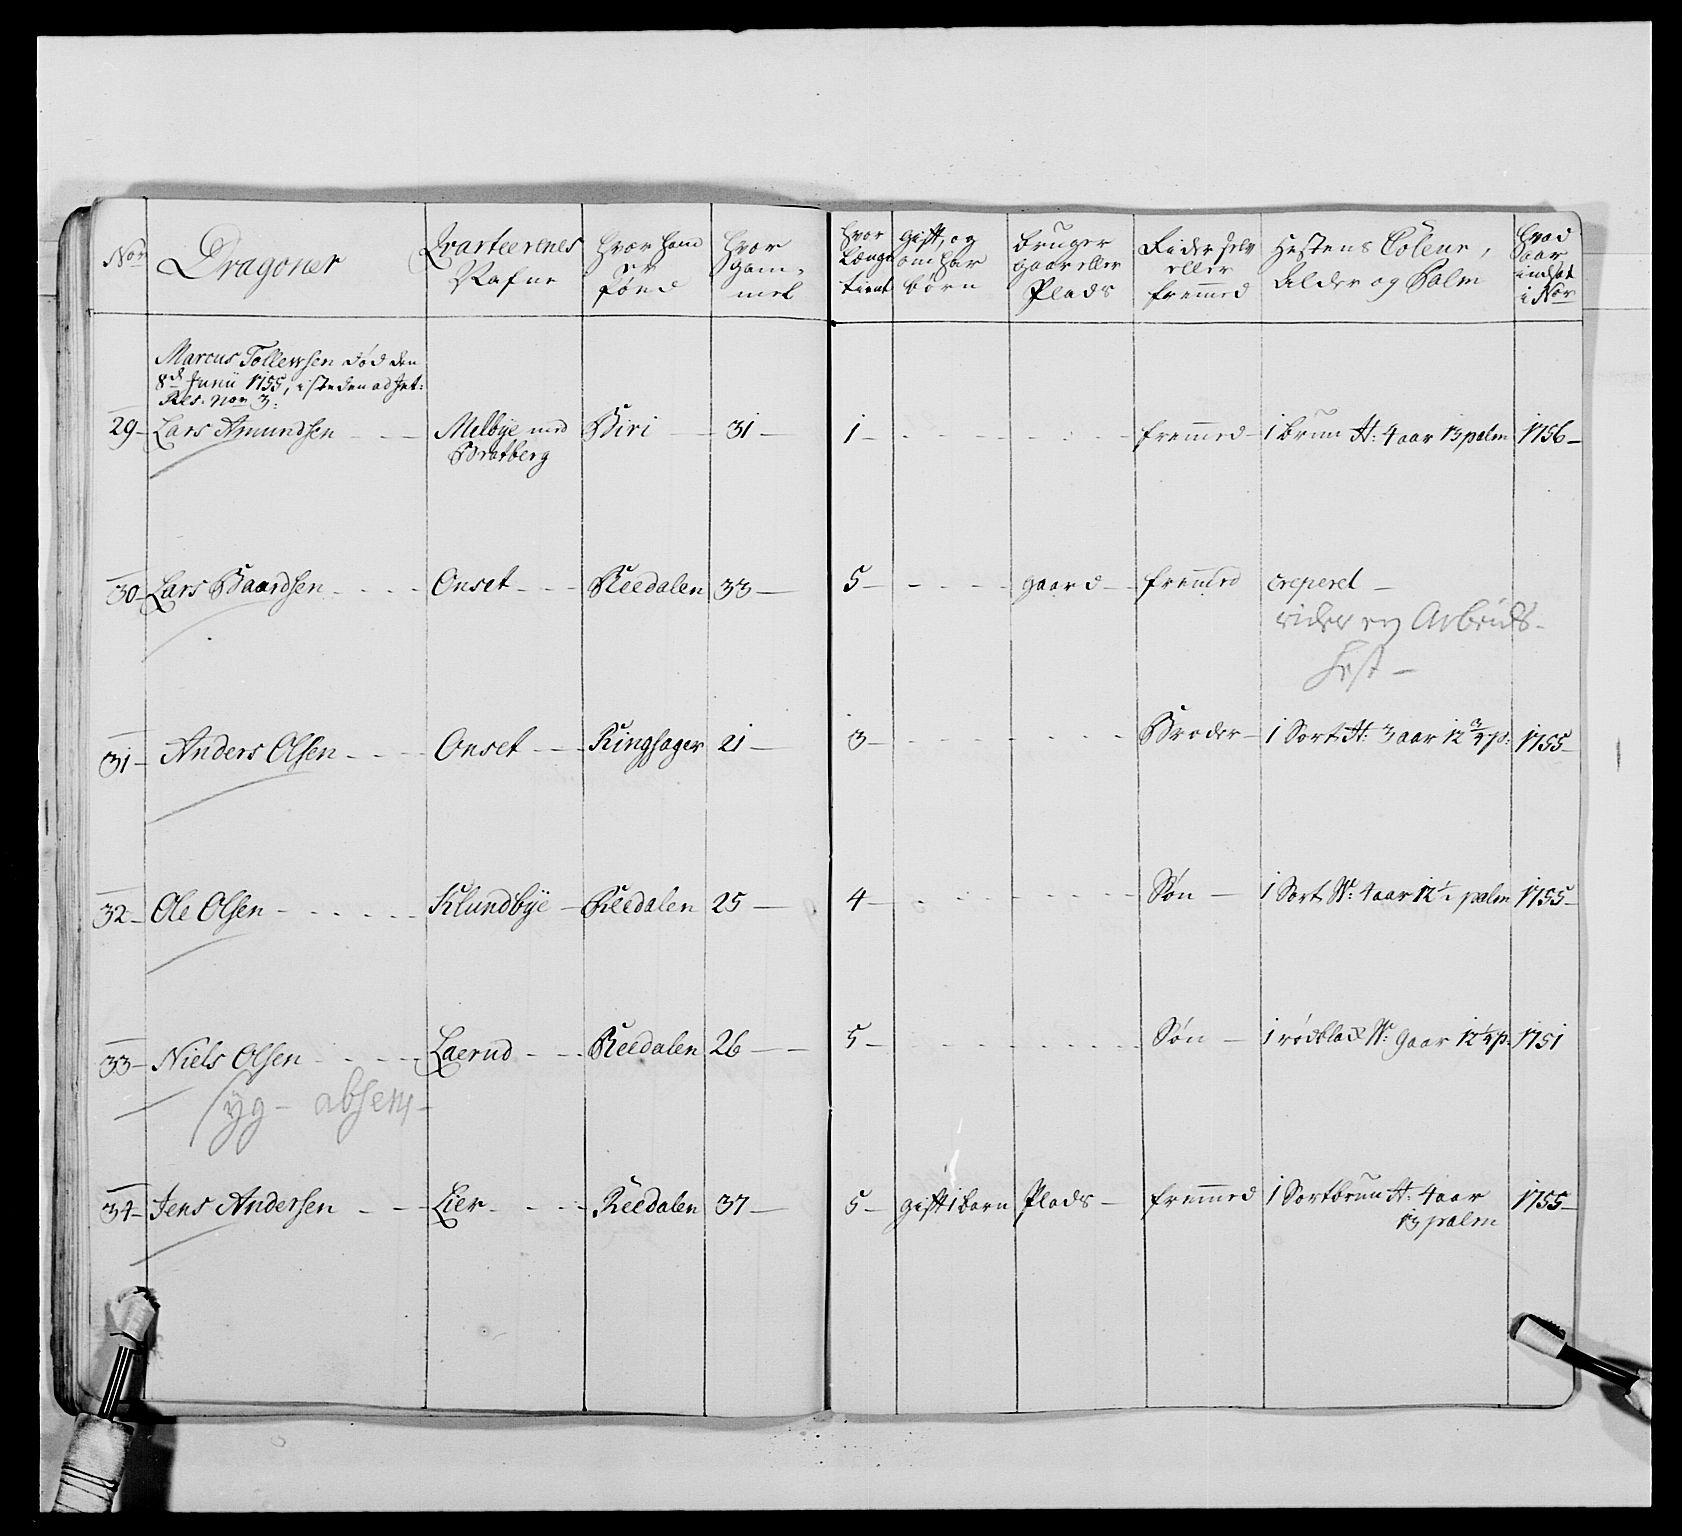 Nor Dragoner Qvarteerenes Nafne Hvor hand er fød Hvor gam- mel Hvor længe tient Gift, og om har børn Bruger gaar eller Plads Rider selv eller fremmed Hestens Cøleur, Alder og Palm Hvad aar indsat i Nor
Marcus Tollewsen død den
8d Junii 1755, isteden ad Int:
Res. Nor 3:
29 Lars Amundsen Melbye med Biri 31 1 fremmed 1 brun H: 4 aar 13 palm 1756
Bratberg
30 Lars Baardsen Onset Reedalen 33 5 gaard fremmed creperet
rider en Arbeids-
Hest
31 Anders Olsen Onset Ringsager 21 3 Broder 1 Sort H: 3 aar 12 3/4 p: 1755
32 Ole Olsen Klundbye Reedalen 25 4 Søn 1 Sort W: 4 aar 12 1/2 palm 1755
33 Niels Olsen Laerud Reedalen 26 5 Søn 1 rødblað W: 9 aar 12 1/4 p. 1751
syg - absent
34 Jens Andersen Lier Reedalen 37 5 gift 1 barn Plads fremmed 1 Sortbrun H: 4 aar 1755
13 palm